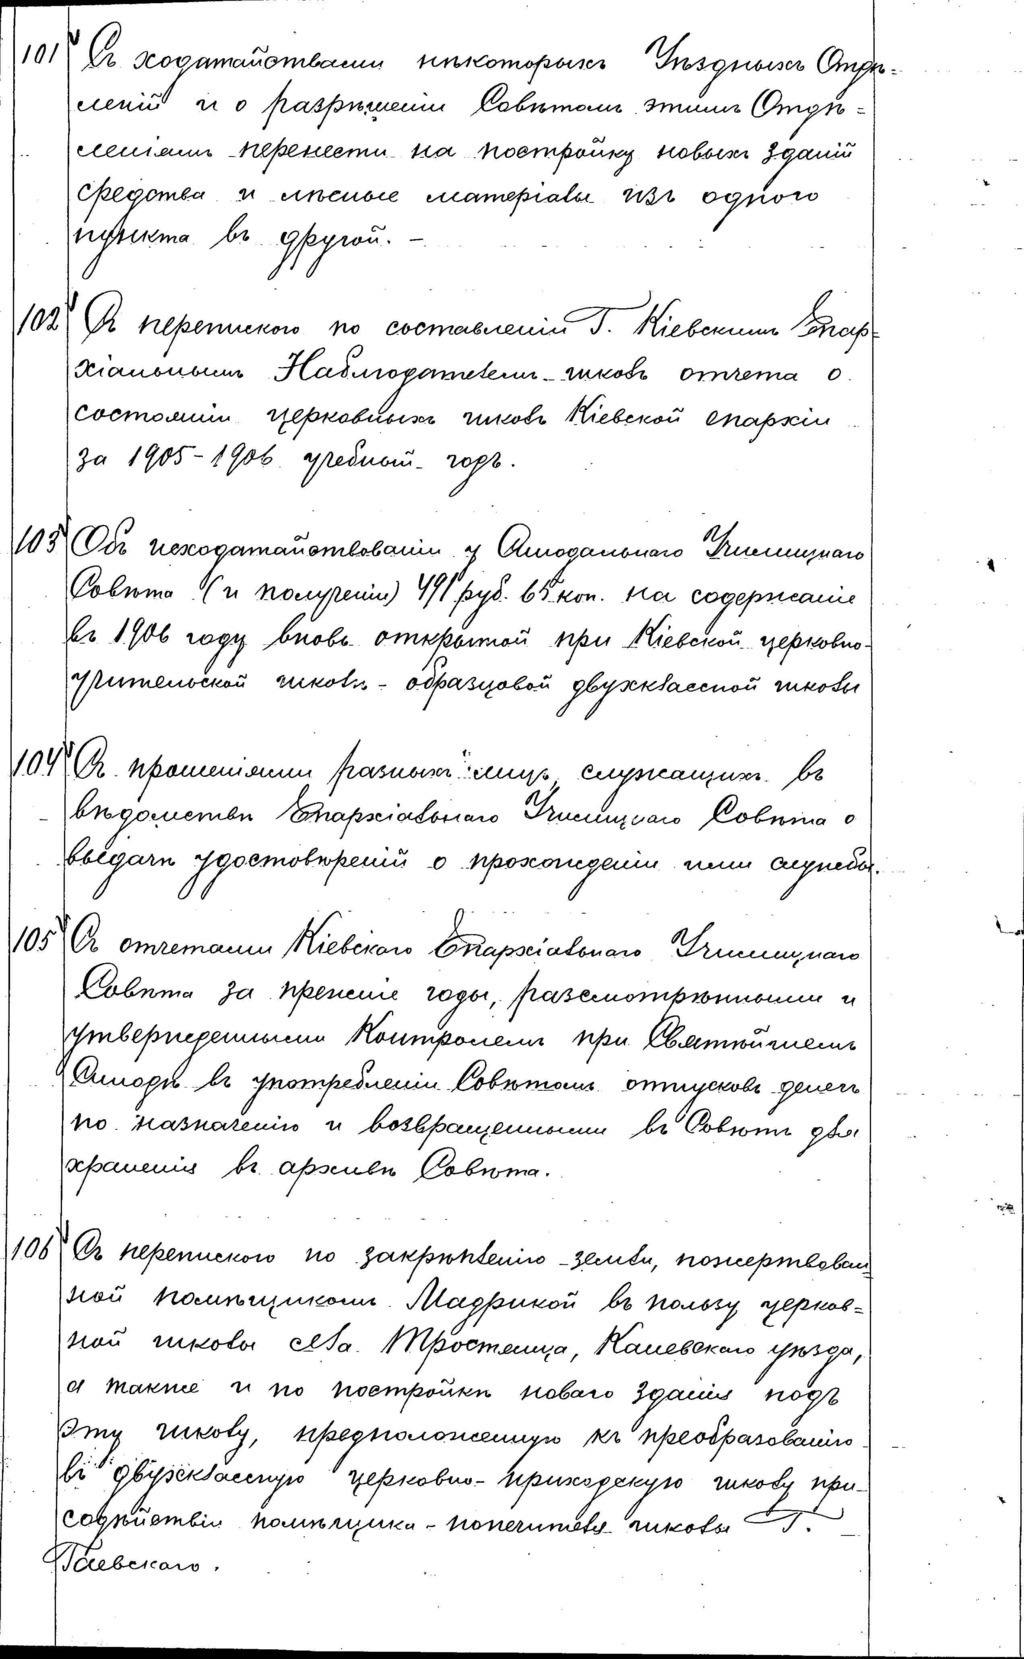 101 Съ ходатайствами нѣкоторыхъ Уѣздныхъ Отдѣ=
леній и о разрѣшеніи Совѣтомъ этимъ Отдѣ=
леніямъ перенести на постройку новыхъ зданій
средства и лѣсные матеріалы изъ одного
пункта въ другой. –
102 Съ перепискою по составленіи Г. Кіевскимъ Епар=
хіальнымъ Наблюдателемъ школъ отчета о
состояніи церковныхъ школъ Кіевской епархіи
за 1905-1906 учебный годъ.
103 Объ исходатайствованіи у Синодальнаго Училищнаго
Совѣта (и полученіи) 491 руб. 65 коп. на содержаніе
въ 1906 году вновь открытой при Кіевской церковно-
учительской школѣ - образцовой двухклассной школы
104 Съ прошеніями разныхъ лицъ, служащихъ въ
вѣдомствѣ Епархіальнаго Училищнаго Совѣта о
выдачѣ удостовѣреній о прохожденіи ими службы.
105 Съ отчетами Кіевскаго Епархіальнаго Училищнаго
Совѣта за прежніе годы, разсмотрѣнными и
утвержденными Контролемъ при Святѣйшемъ
Синодѣ въ употребленіи Совѣтомъ отпусковъ денегъ
по назначенію и возвращенными въ Совѣтъ для
храненія въ архивѣ Совѣта.
106 Съ перепискою по закрѣпленію земли, пожертвован
ной помѣщикомъ Мадрикой въ пользу церков=
ной школы села Тростенца, Каневскаго уѣзда,
а также и по постройкѣ новаго зданія подъ
эту школу, предположенную къ преобразованію
въ двухклассную церковно-приходскую школу при
содѣйствіи помѣщика - попечителя школы Г.
Гаевскаго.